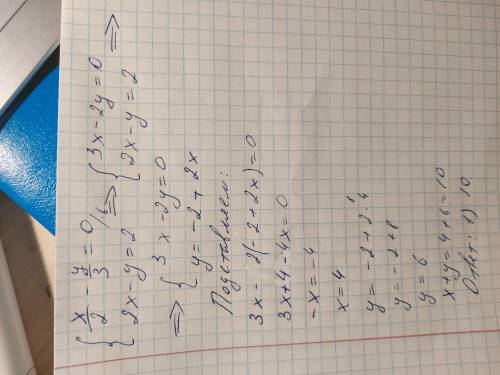 { x/2 - y/3 = 0 /·6 ⇒ { 3x - 2y = 0
{ 2x - y = 2 { 2x - y = 2 ⇒
⇒ { 3x - 2y = 0
{ y = -2 + 2x
Подставляем:
3x - 2(-2 + 2x) = 0
3x + 4 - 4x = 0
-x = -4
x = 4
y = -2 + 2·4
y = -2 + 8
y = 6
x + y = 4 + 6 = 10
Ответ: 1) 10